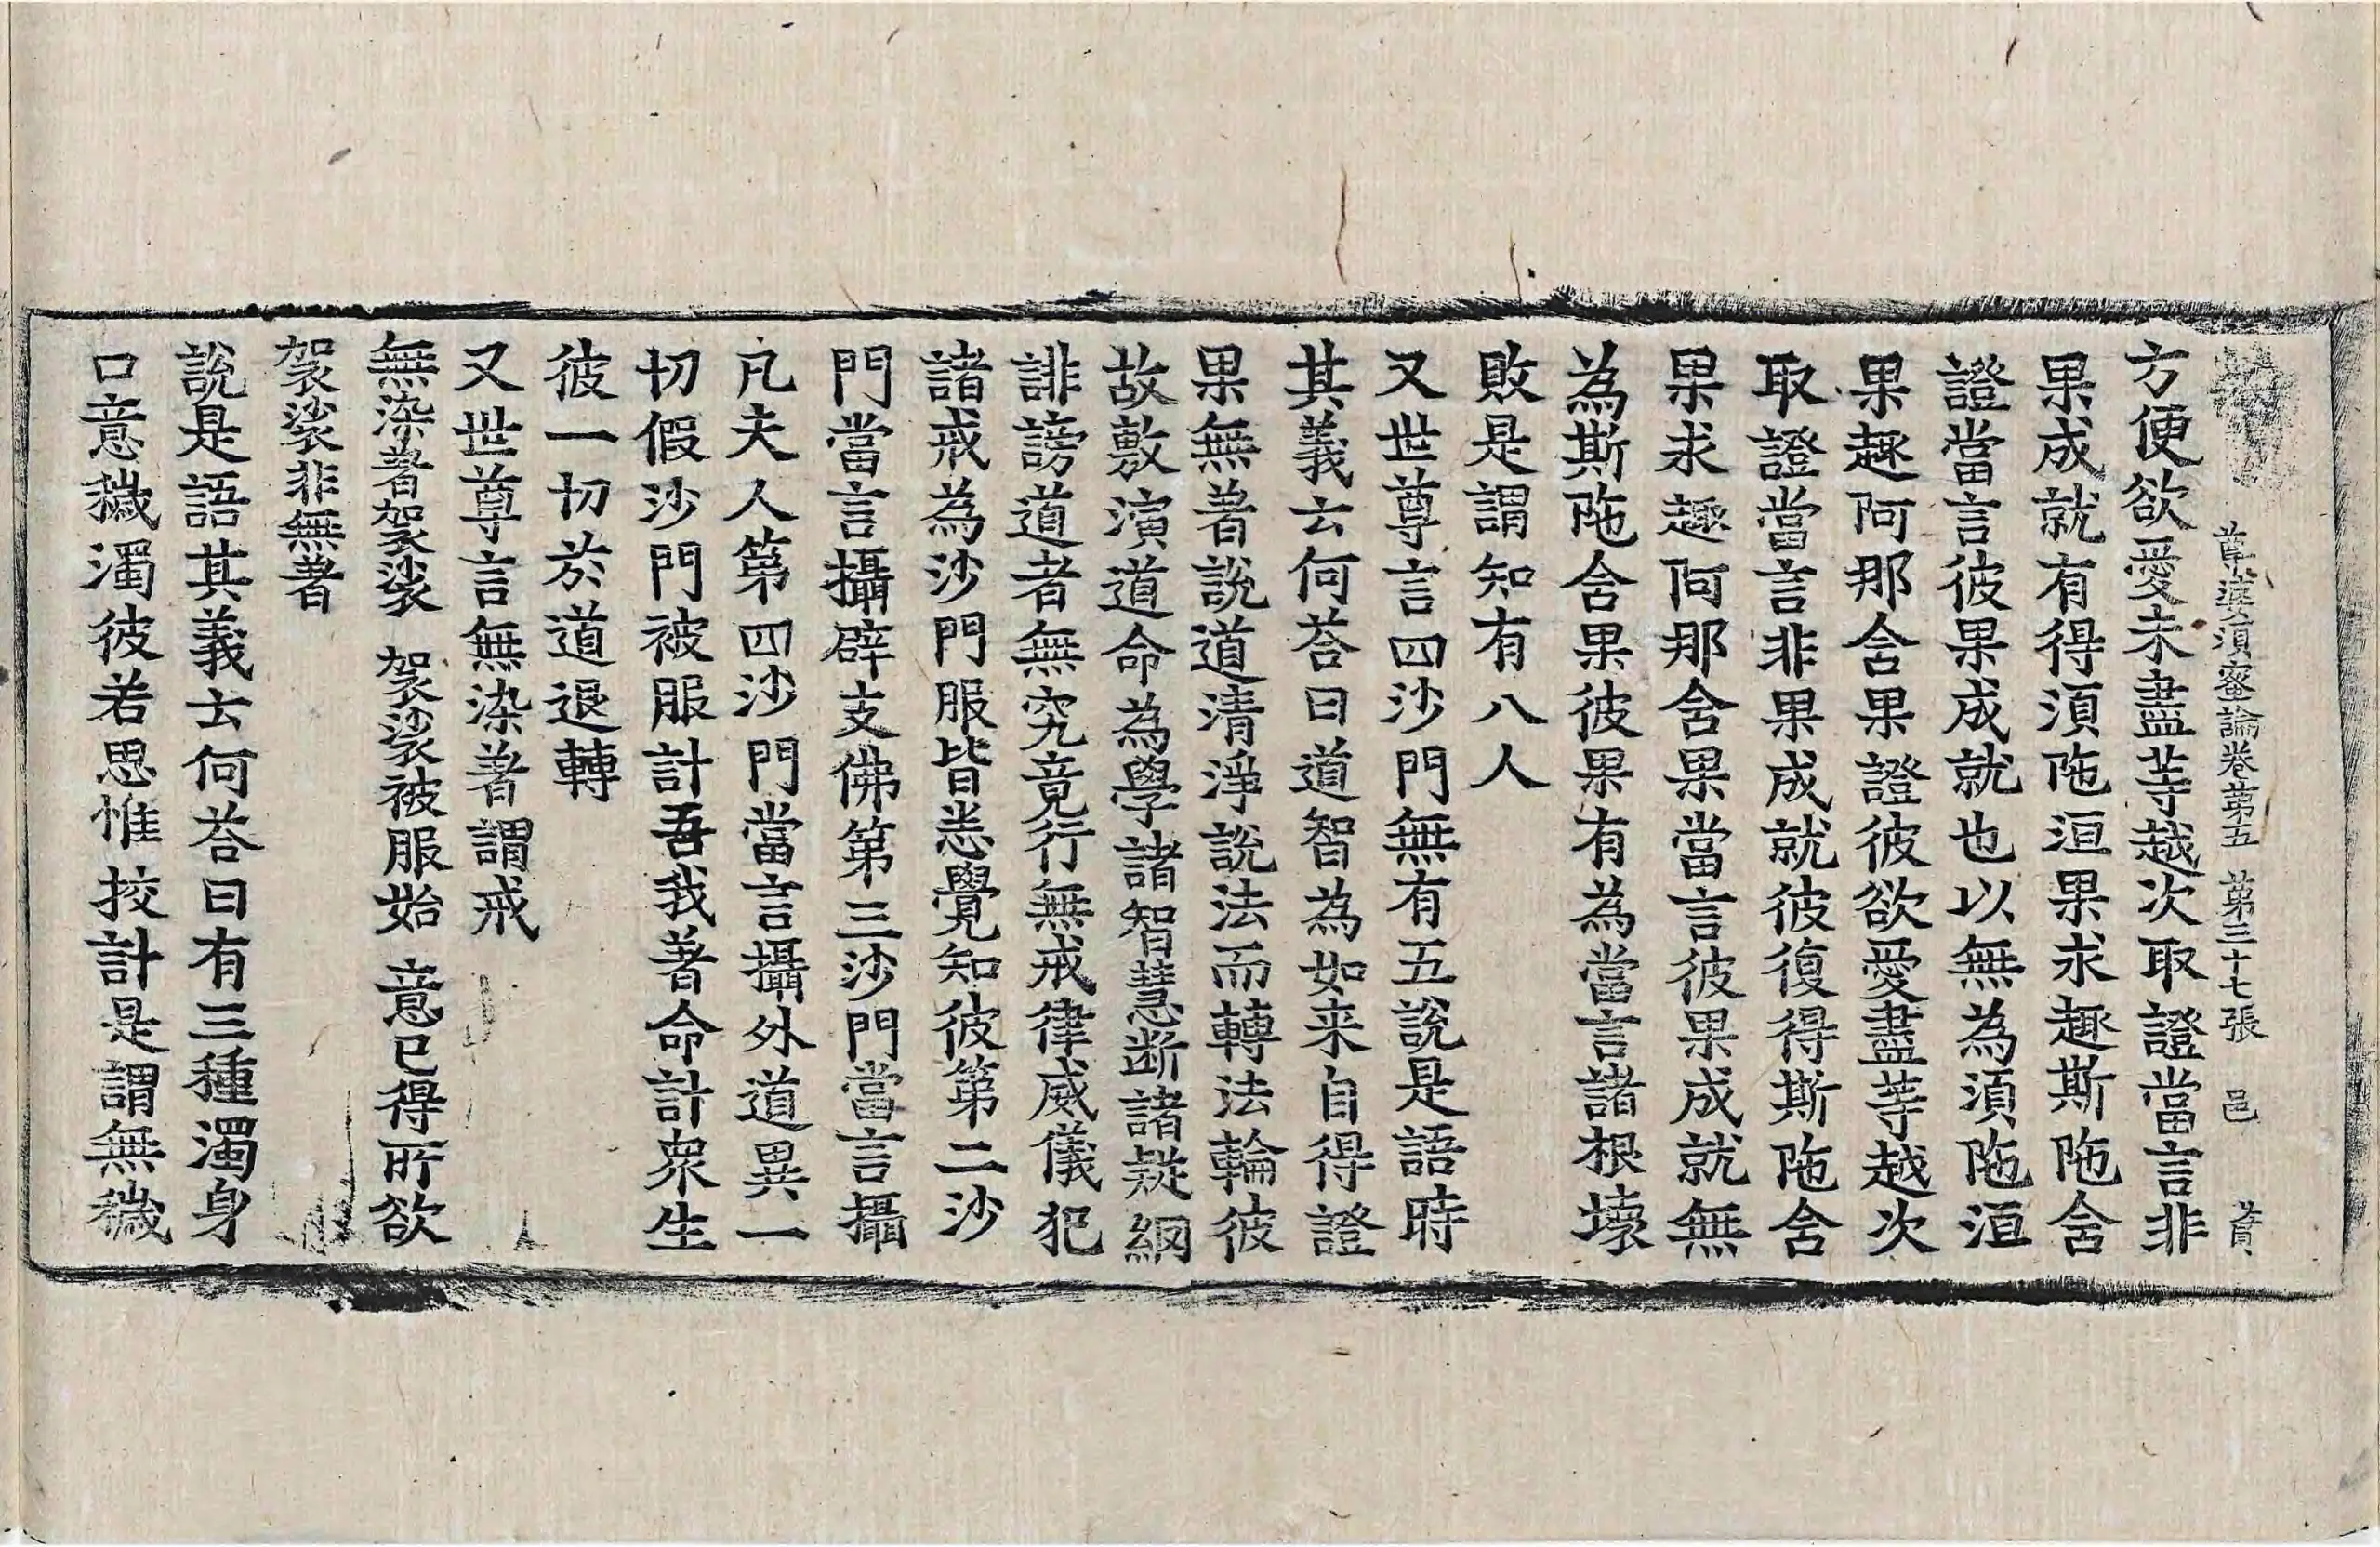 尊婆須蜜論卷第五 第三十七張 邑
方便欲愛未盡等越次取證當言非
果成就有得須陁洹果求趣斯陁舍
證當言彼果成就也以無為須陁洹
果趣阿那含果證彼欲愛盡等越次
取證當言非果成就彼復得斯陁舍
果求趣阿那舍果當言彼果成就無
為斯陁舍果彼果有為當言諸根壞
敗是謂知有八人
又世尊言四沙門無有五說是語時
其義云何荅曰道智為如来自得證
果無著說道清淨說法而轉法輪彼
故敷演道命為學諸智慧断諸疑網
誹謗道者無究竟行無戒律威儀犯
諸戒為沙門服皆悉覺知彼第二沙
門當言攝辟支佛第三沙門當言攝
凡夫人第四沙門當言攝外道異一
切假沙門被服計吾我著命計衆生
彼一切於道退轉
又世尊言無染著謂戒
無染著袈裟 袈裟被服始 意已得所欲
袈裟非無著
說是語其義云何荅曰有三種濁身
口意穢濁彼若思惟挍計是謂無穢